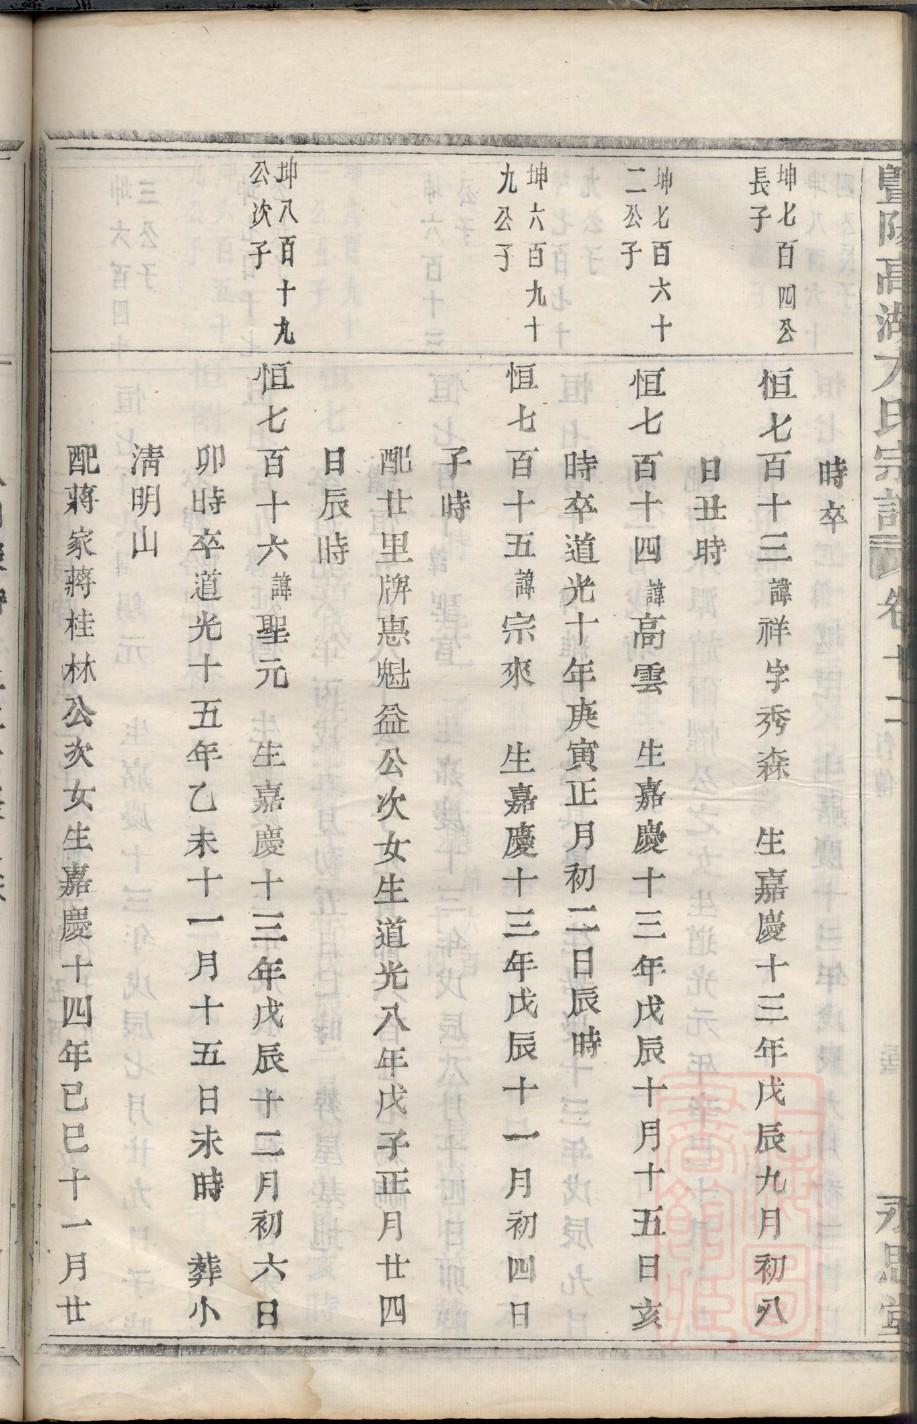 暨陽高湖方氏宗譜 卷十二 永思堂
時卒
坤七百四公
長子
恒七百十三諱祥字秀森 生嘉慶十三年戊辰九月初八
日丑時
坤七百六十
二公子
恒七百十四諱高雲 生嘉慶十三年戊辰十月十五日亥
時卒道光十年庚寅正月初二日辰時
坤六百九十
九公子
恒七百十五諱宗來 生嘉慶十三年戊辰十一月初四日
子時
配廿里牌惠魁益公次女生道光八年戊子正月廿四
日辰時
坤八百十九
公次子
恒七百十六諱聖元 生嘉慶十三年戊辰十二月初六日
卯時卒道光十五年乙未十一月十五日未時 葬小
淸明山
配蔣家蔣桂林公次女生嘉慶十四年己巳十一月廿